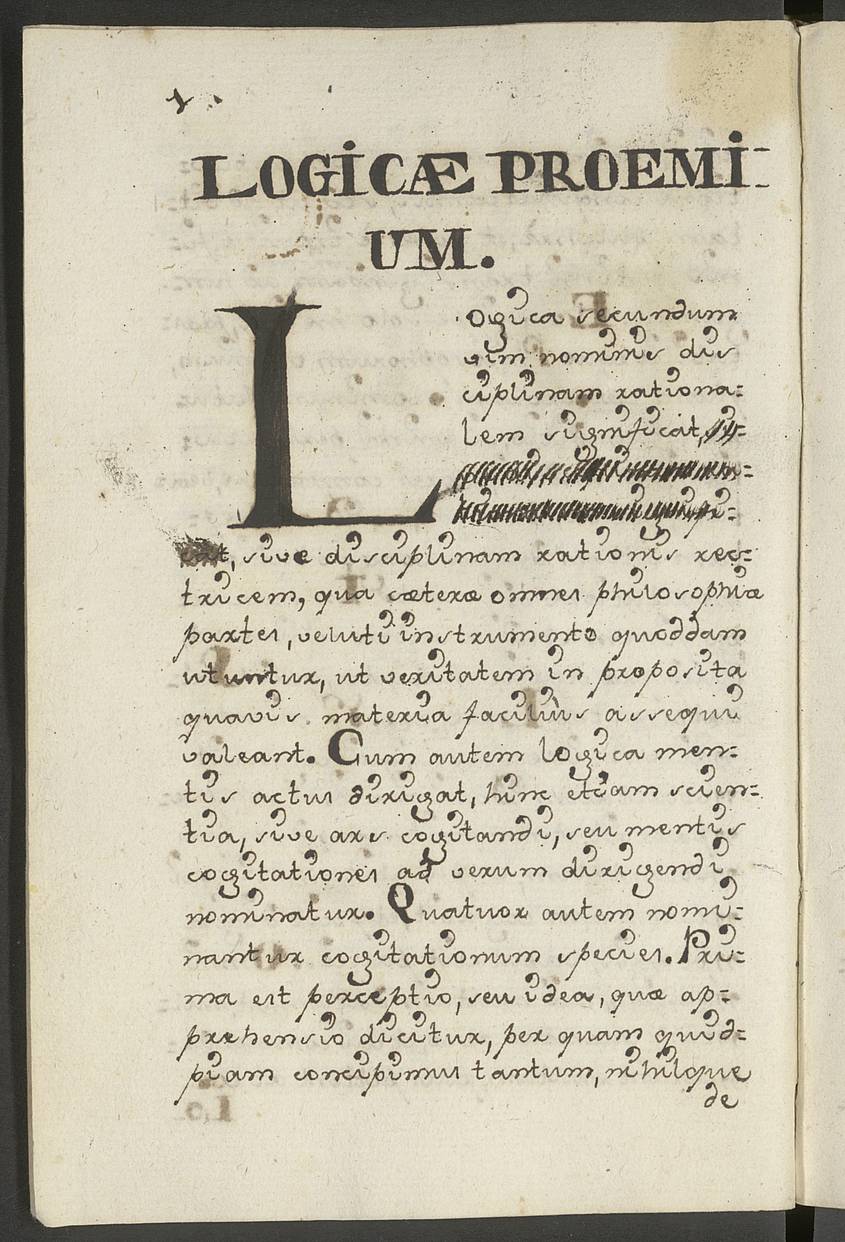 1.
LOGICÆ PROEMI=
UM.
Logica secundum
vim nominis dis
ciplinam rationa=
lem significat,
cat, sive disciplinam rationis rec=
tricem, qua cæteræ omnes philosophiæ
partes, veluti instrumento quoddam
utuntur, ut veritatem in proposita
quavis materia faciliùs assequi
valeant. Cum autem logica men=
tis actus dirigat, hinc etiam scien=
tia, sive ars cogitandi, seu mentis
cogitationes ad verum dirigendi
nominatur. Quatuor autem nomi=
nantur cogitationum species. Pri=
ma est perceptio, seu idea, quæ ap=
prehensio dicitur, per quam quid=
piam concipimus tantum, nihilque
de